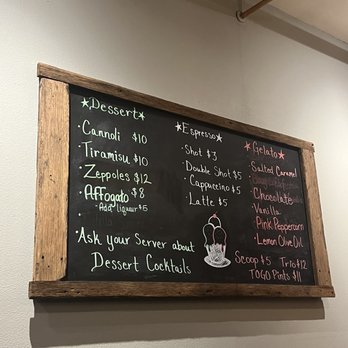 ★Dessert★
· Cannoli $10
· Tiramisu $10
· Zeppoles $12
· Affogato $8
· Add liqueur $5
·
· Ask your Server about
Dessert Cocktails
★Espresso★
· Shot $3
· Double Shot $5
· Cappuccino $5
· Latte $5
★Gelato★
· Salted Caramel
· Chocolate
· Vanilla
· Pink Peppercorn
· Lemon Olive Oil
Scoop $5 Trio $12
TOGO Pints $11